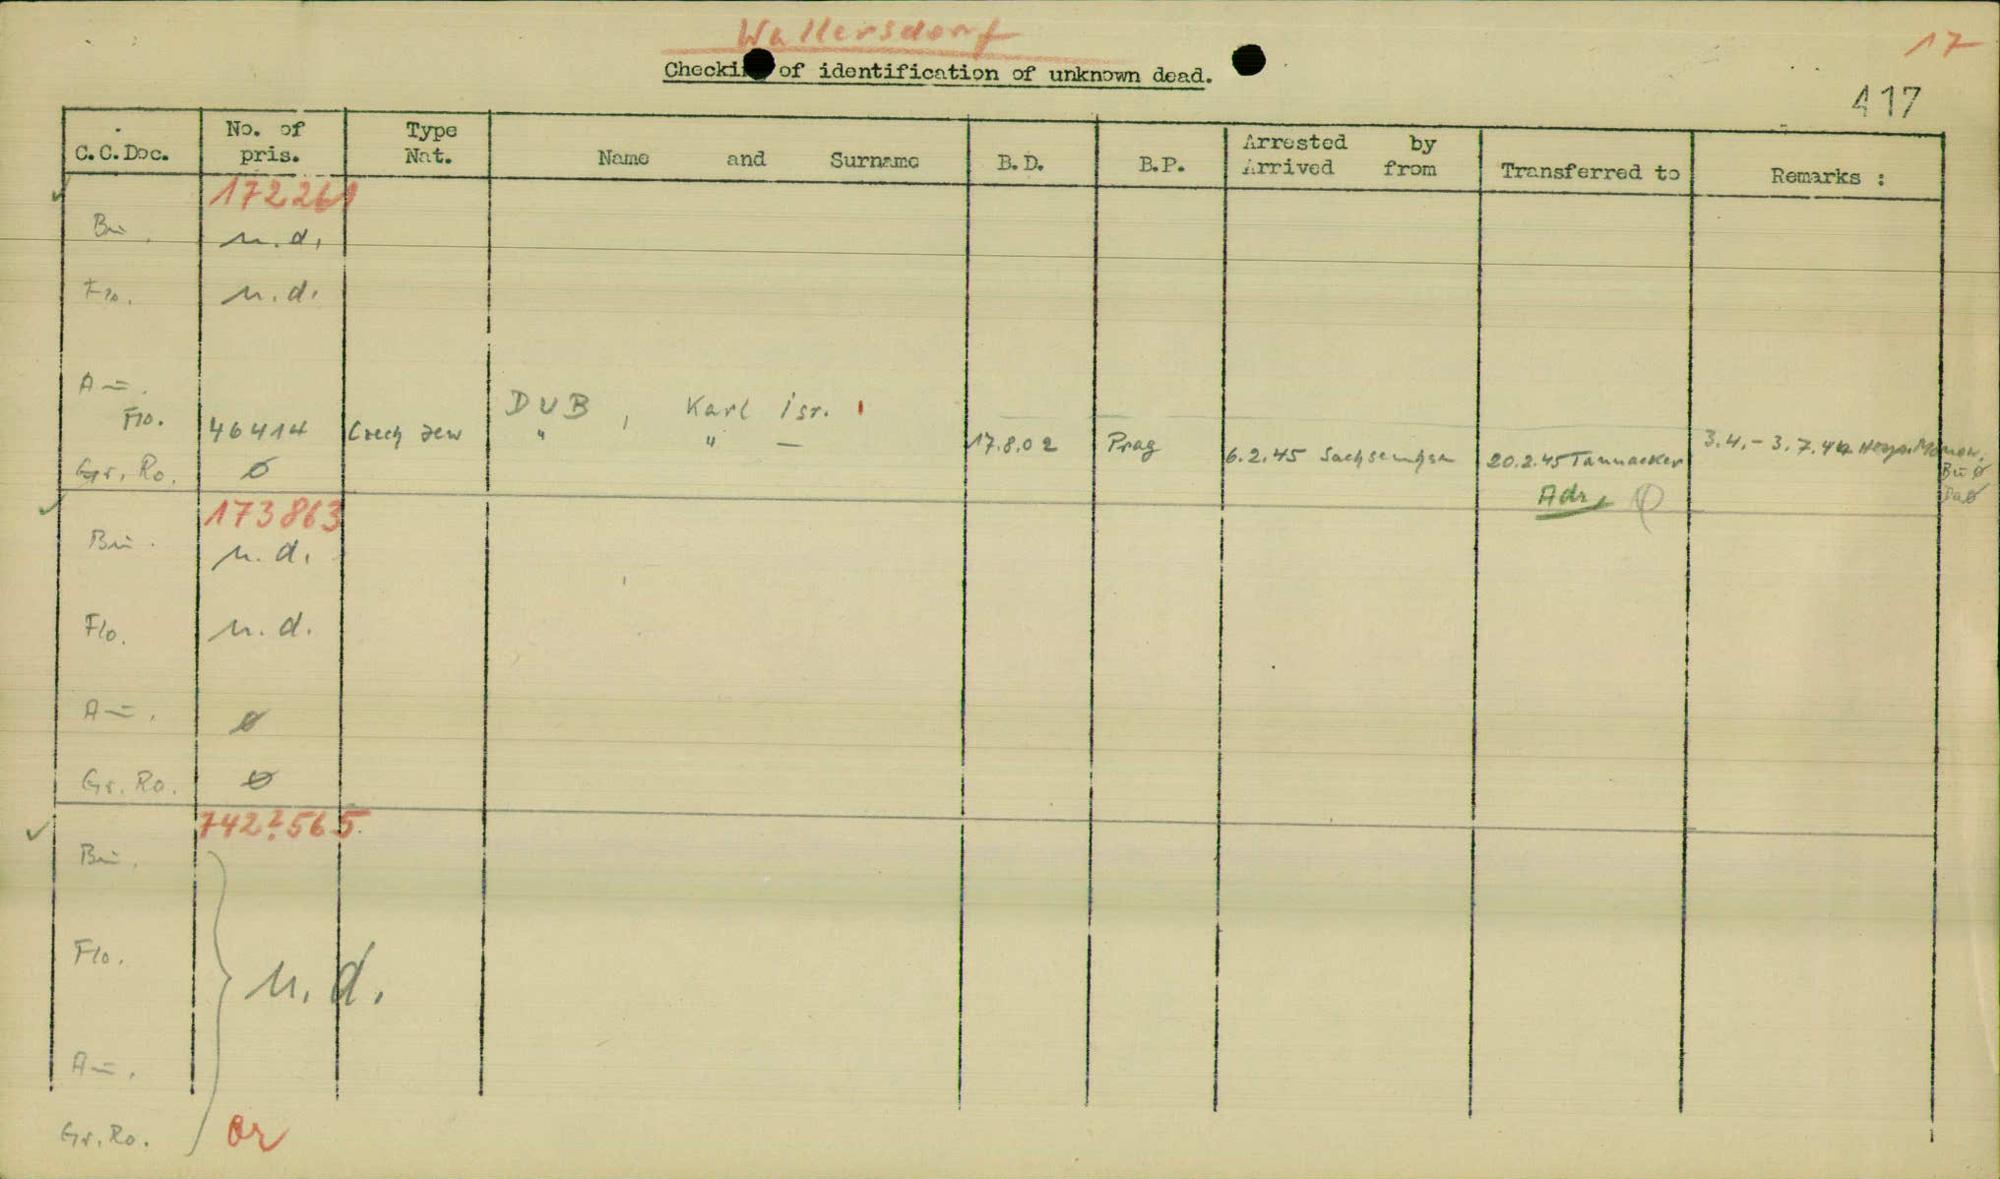 Wallersdorf
17
Checking of identification of unknown dead.
417
C.C.Doc. No. of pris. Type Nat. Name and Surname B.D. B.P. Arrested by Arrived from Transferred to Remarks :
172261
Bu. n.d.
Flo. n.d.
A=. DUB, Karl isr.
Flo. 46414 Czech Jew " " — 17.8.02 Prag 6.2.45 20.2.45 Tannacker 3.4.-3.7.44
Gr. Ro. ø Bu ø
Adr. Da ø
173863
Bu. n.d.
Flo. n.d.
A=. ø
Gr. Ro. ø
742?565
Bu.
Flo.
n.d.
A=.
Gr. Ro. or